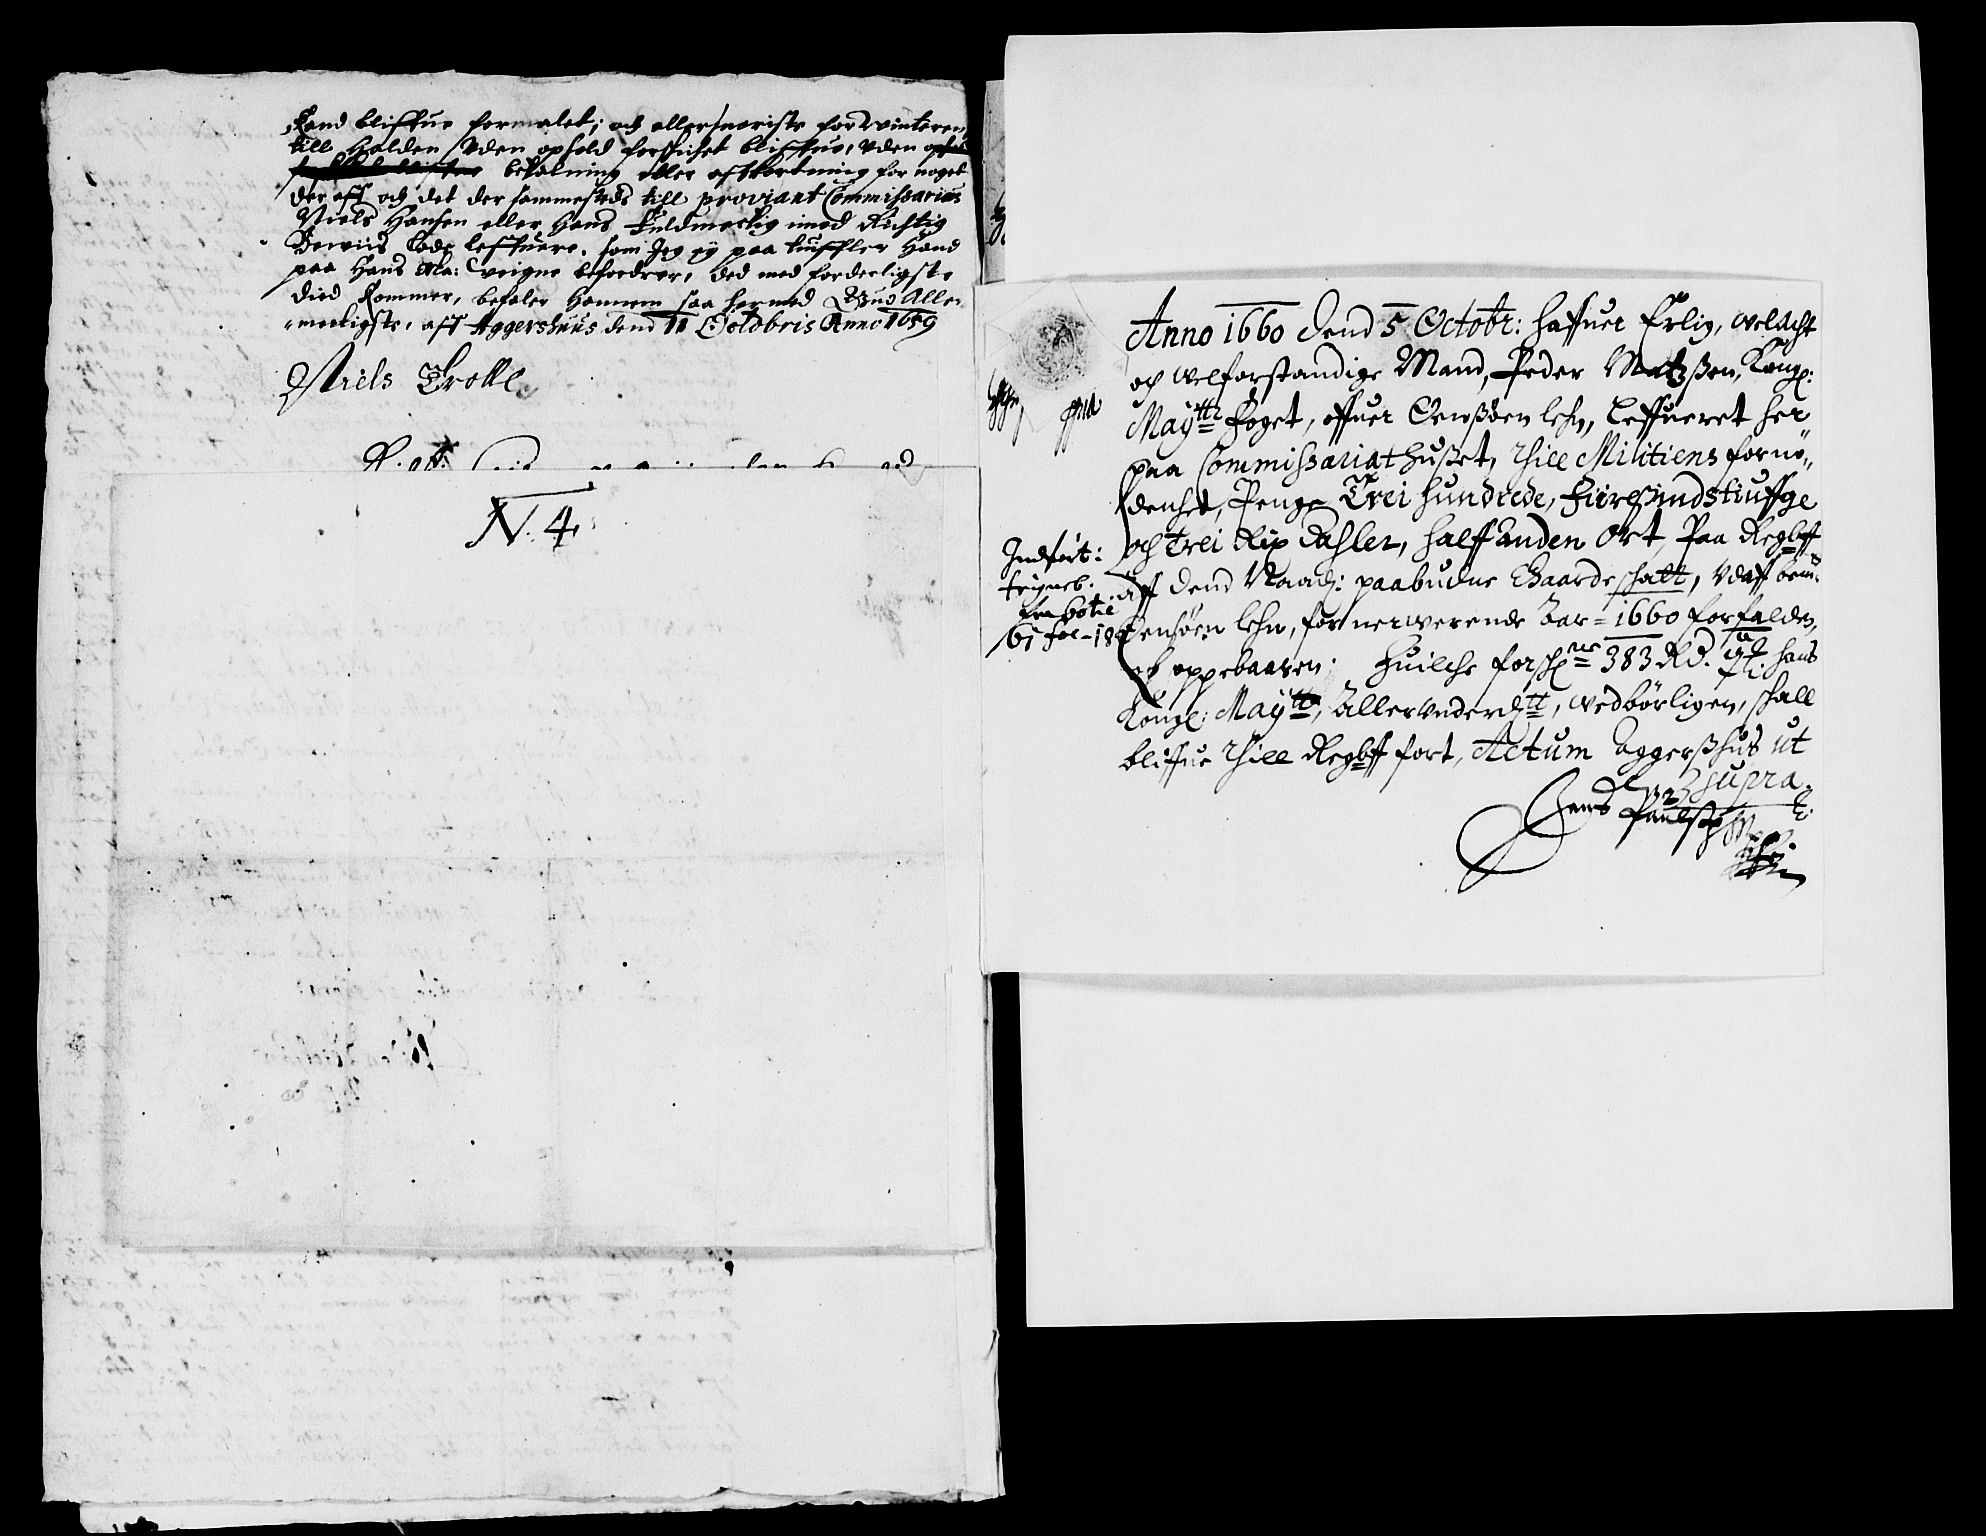 Kand bliffue formalet, och allersnariste for Vinteren,
till Halden Uden ophold forskichet bliffue, Uden
betalning eller affkortning for noget
der aff och det der sammesteds till proviant Commissarius
Niels Hansen eller Hans fuldmectig imod Richtig
Beviis lade leffuere, som Jeg
paa Hans Ma: Veigne befordrer, ded med forderligste
died kommer, befaler Hannem saa hermed Gud Aller
mectigste, aff Aggershuus dend 11 Octobris Anno 1659
Niels Trolle
N. 4
Anno 1660 Dend 5 Octobr: haffuer Erlig, Velacht
och Velforstandige Mand, Peder Matzßen, Kongl:
Maytts Foget, offuer lehn, Leffueret her
paa Commissariathusset, Thill Militiens fornö,,
denhet, Penge Trei hundrede, Fiiresindstiuffge
och trei Rix Dahler, halffanden Ort, Paa Regbff
Aff dend Naadj: paabudne Gaardeschatt, Vdaff bem:
lehn, for nerverende Aar = 1660 forfalden,
och oppebaaren; Huilche forschne 383 Rd. hans
Kongl: Maytt, Allervnderdtt, vedbörligen, schall
bliffue Thill Regbff fört, Actum Aggerßhus ut
supra.
Hans Paulßøn
Indfört:
61 fol - 18